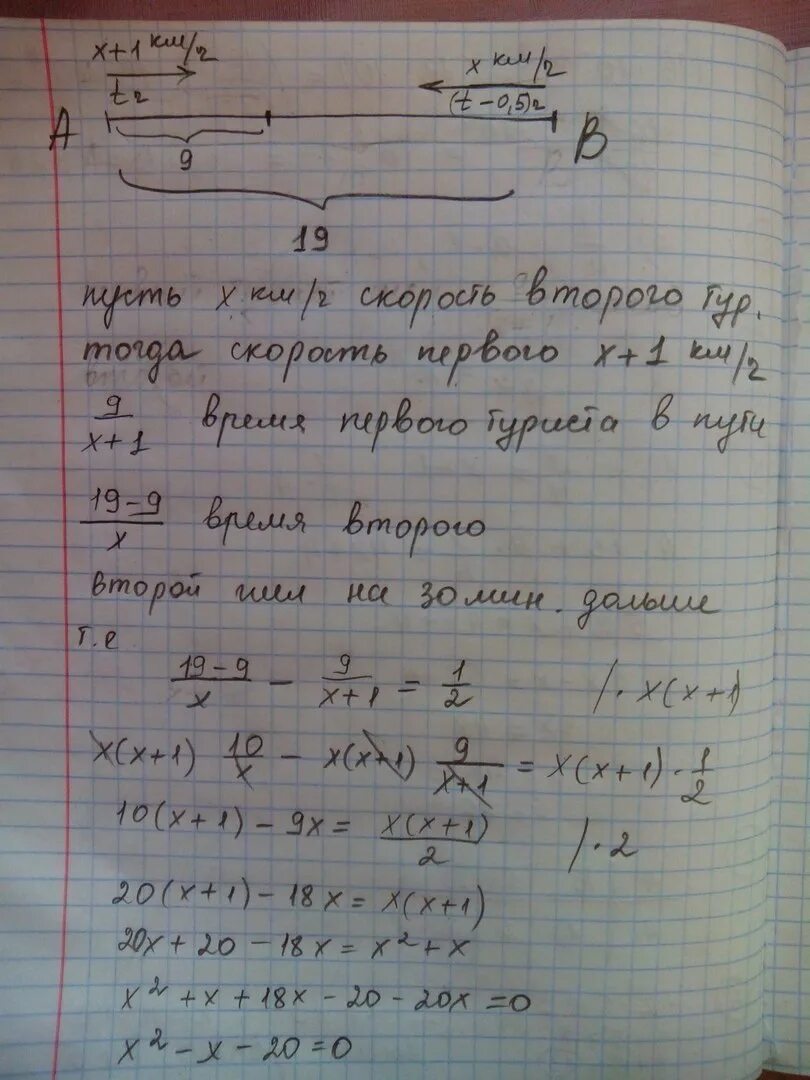 x+1 км/ч
t ч
x км/ч
(t-0,5)ч
А
В
9
19
пусть x км/ч скорость второго тур.
тогда скорость первого x+1 км/ч
9/(x+1) время первого туриста в пути
(19-9)/x время второго
второй шел на 30 мин. дольше
т.е
(19-9)/x - 9/(x+1) = 1/2 /· x(x+1)
x(x+1) 10/x - x(x+1) 9/(x+1) = x(x+1)·1/2
10(x+1) - 9x = x(x+1)/2 /·2
20(x+1) - 18x = x(x+1)
20x + 20 - 18x = x² + x
x² + x + 18x - 20 - 20x = 0
x² - x - 20 = 0